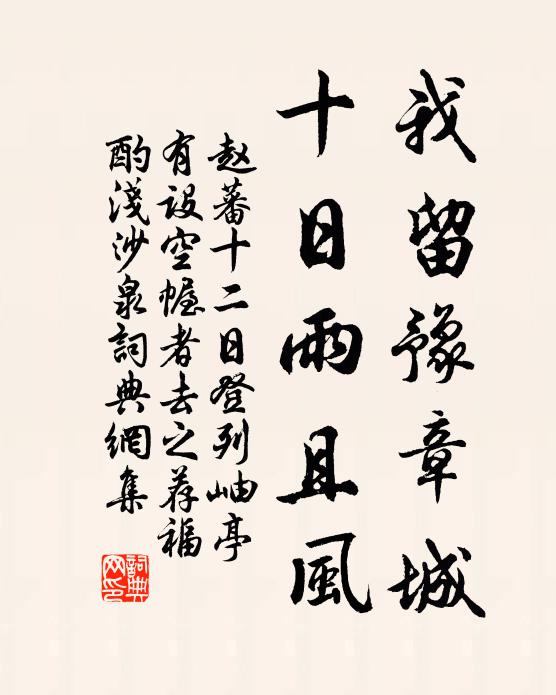 我留豫章城
十日雨且風
赵蕃十二日登列岫亭
有设空幄者去之荐福
酌淺沙泉詞典網集
詞典网印